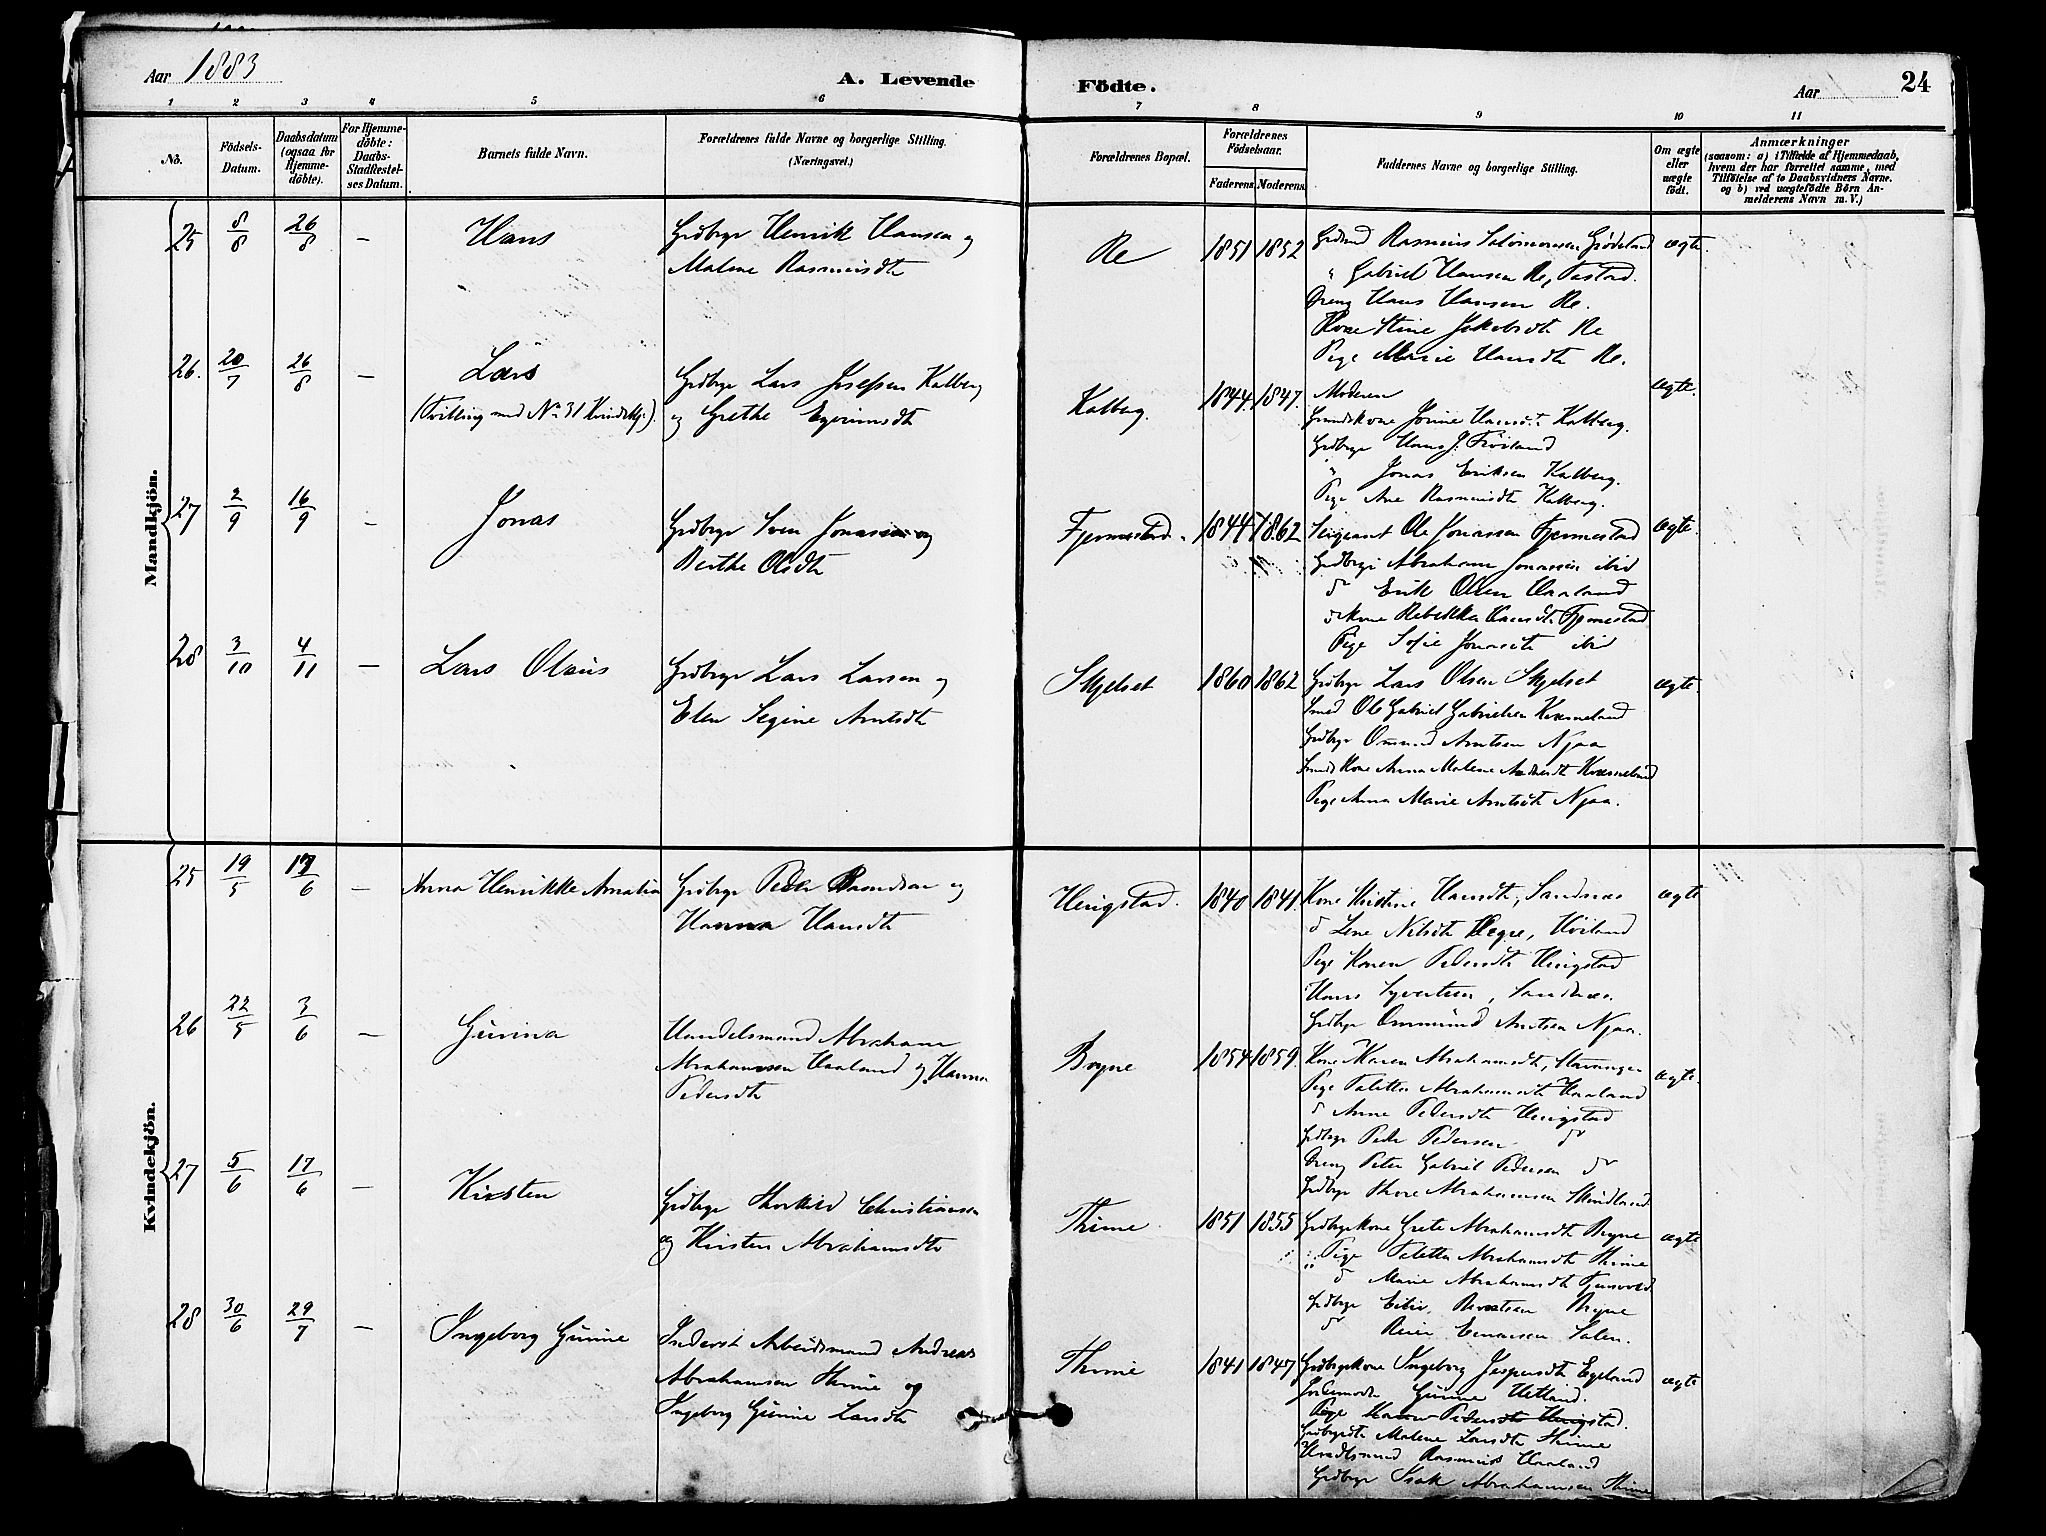 Aar 1883
A. Levende Födte.
Aar
24
1 2 3 4 5 6 7 8 9 10 11
No.
Födsels-Datum.
Daabsdatum (ogsaa for Hjemme-döbte).
For Hjemme-döbte: Daabs-Stadfæstel-ses Datum.
Barnets fulde Navn.
Forældrenes fulde Navne og borgerlige Stilling.
(Næringsvei.)
Forældrenes Bopæl.
Forældrenes Födselsaar.
Faderens Moderens
Faddernes Navne og borgerlige Stilling.
Om ægte eller uægte födt.
Anmærkninger
(saasom: a) i Tilfælde af Hjemmedaab,
hvem der har forrettet samme, med
Tilföielse af to Daabsvidners Navne.
og b) ved uægtefödte Börn An-
melderens Navn m. V.)
Mandkjön.
25 8/8 26/8 — Hans
Grdbrgr Henrik Hansen og
Malene Rasmusdtr
Re 1851 1852
Rasmus Salomonsen Grödeland
" Gabriel Hansen Re, Tastad.
Dreng Hans Hansen Re.
Kone Stine Jakobsdtr Re
Pige Marie Hansdtr Re.
ægte.
26. 20/7 26/8 — Lars
(Tvilling med No 31 Kvindekj.)
Grdbrgr Lars Josefsen Kalberg
og Grethe
Kalberg. 1844. 1847.
Moderen
Jorine Hansdt Kalberg.
Grdbrgr Hans J. Fröiland
" Jonas Eriksen Kalberg.
Pige Ane Rasmusdtr Kalberg.
ægte.
27 2/9 16/9 — Jonas
Grdbrgr Sven Jonassen og
Berthe Olsdtr
Fjermestad. 1844 1862
Sergeant Ole Jonassen Fjermestad
Grdbrgr Abraham Jonassen ibid
do Erik Olsen Haaland
do Kone Rebekka Hansdtr Fjermestad
Pige Sofie Jonasdtr ibid
ægte.
28 3/10 4/11 — Lars Olaus
Grdbrgr Lars Larsen og
Elen Segine Arntsdtr
Skjelset 1860 1862
Grdbrgr Lars Olsen Skjelset
Smed Ole Gabriel Gabrielsen Kverneland
Grdbrgr Ommund Arntsen Njaa
Smeds Kone Anna Malene Kverneland
Pige Anna Marie Arntsdtr Njaa.
ægte.
Kvindekjön.
25 19/5 17/6 — Anna Henrikke Amalia
Grdbrgr Peder og
Hanna Hansdtr
Hingstad. 1840 1841.
Kone Kristine Hansdtr, Sandnæs
do Lene Nilsdtr Høiland
Pige Karen Pedersdtr Hingstad
Hans Syvertsen, Sandnæs.
Grdbrgr Ommund Arntsen Njaa.
ægte
26 22/5 3/6 — Gurina
Handelsmand Abraham
Abrahamsen Haaland og Hanna
Pedersdtr
Bryne 1854 1859.
Kone Karen Abrahamsdtr, Stavanger
Pige Taletta Abrahamsdtr Haaland
do Anne Pedersdtr Hingstad
Grdbrgr Peder Pedersen do
Dreng Peter Gabriel Pedersen do
Grdbrgr Thore Abrahamsen
ægte.
27 5/6 17/6 — Kirsten
Grdbrgr Thorkild Christiansen
og Kirsten Abrahamsdtr
Thime 1851 1855
Grdbrgrkone Grete Abrahamsdtr Bryne
Pige Taletta Abrahamsdtr Thime
do Marie Abrahamsdtr
Grdbrgr Eiliv Bryne
do Reier Salen.
ægte
28 30/6 29/7 — Ingeborg Gurine
Inderst Arbeidsmand Andreas
Abrahamsen Thime og
Ingeborg Gurine Larsdtr
Thime 1841 1847
Grdbrgrkone Ingeborg Jespersdtr Egeland
Jordemoder Gurine Hetland.
Pige Karen Pedersdtr Hingstad.
Malene Larsdtr Thime
Rasmus Haaland
Grdbrgr Isak Abrahamsen Thime
ægte